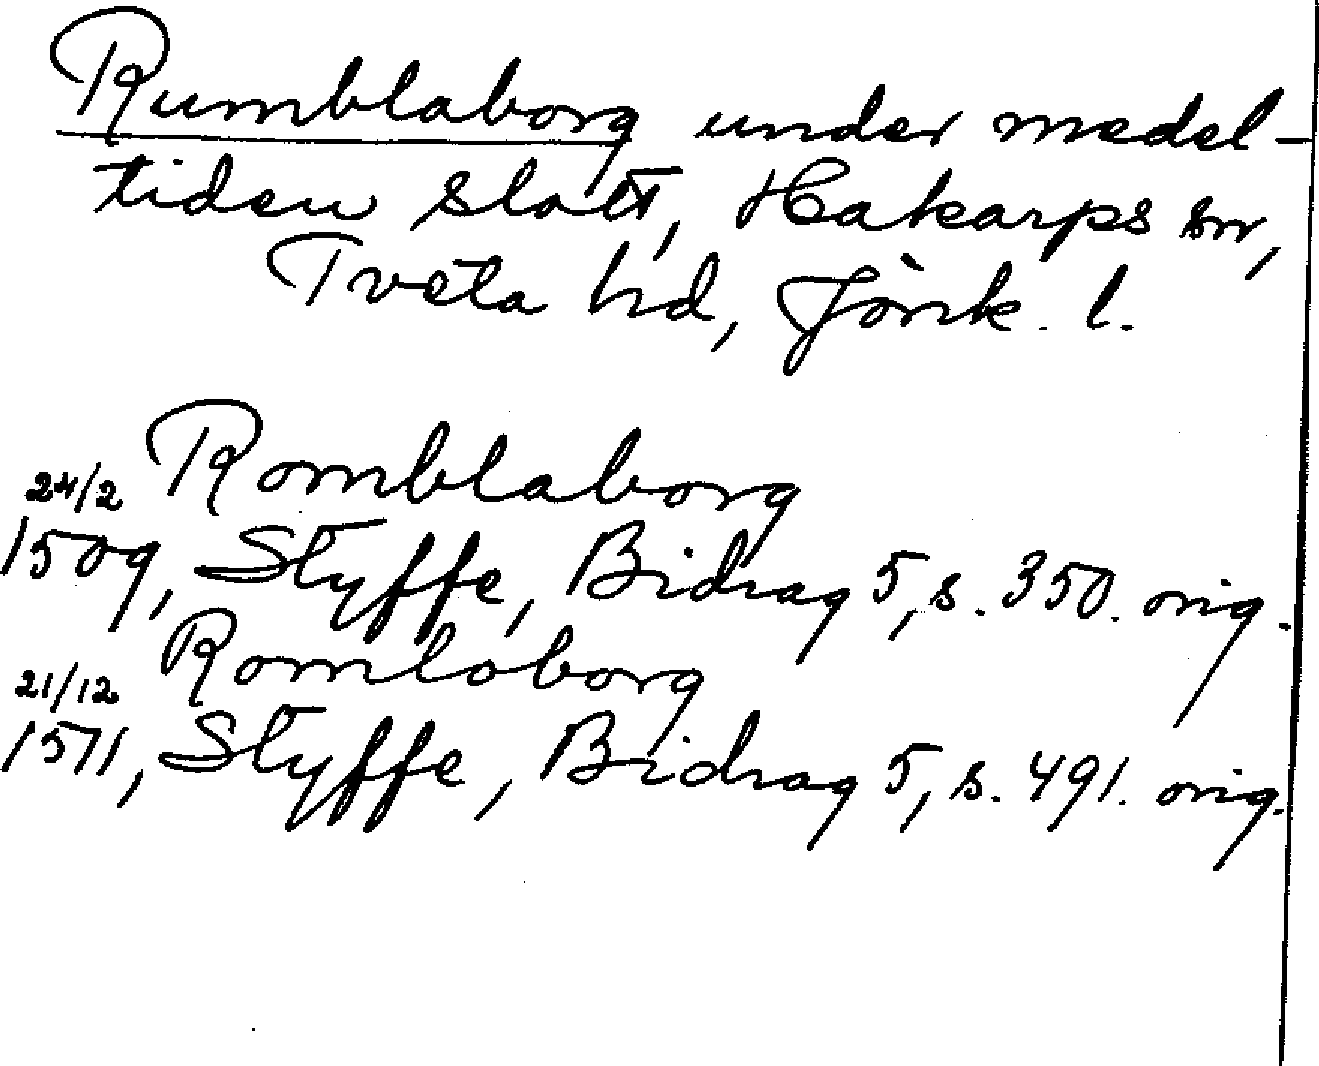 Rumblaborg under medel-
tiden slott, Hakarps sn,
Tveta hd, Jönk. l.
Romblaborg
24/2
1509, Styffe, Bidrag 5, s. 350. orig.
Romloborg
21/12
1511, Styffe, Bidrag 5, s. 491. orig.